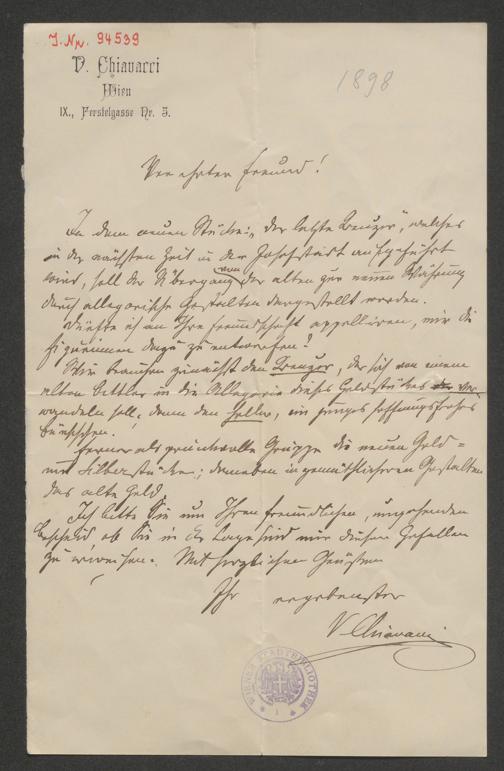 J. Nr. 94539
V. Chiavacci
Wien
IX., Ferstelgasse Nr. 5.
1898
Verehrter Freund!
In dem neuen Stücke: „Der letzte Kreuzer", welches
in der nächsten Zeit in der Josefstadt aufgeführt
wird, soll der Übergang von der alten zur neuen Währung
durch allegorische Gestalten dargestellt werden.
Dürfte ich an Ihre Freundschaft appellieren, mir die
Figurinen dazu zu entwerfen?
Wir brauchen zunächst den Kreuzer, der sich von einem
alten Bettler in die Allegorie dieses Geldstückes ver
wandeln soll, dann den Heller, ein junges hoffnungsfrohes
Bürschchen.
Ferner als prunkvolle Gruppe die neuen Gold-
und Silberstücke; daneben in gemüthlicheren Gestalten
das alte Geld
Ich bitte Sie um Ihren freundlichen, umgehenden
Bescheid ob Sie in der Lage sind mir diesen Gefallen
zu erweisen. Mit herzlichen Grüssen
Ihr ergebenster
V. Chiavacci
WIENER STADTBIBLIOTHEK